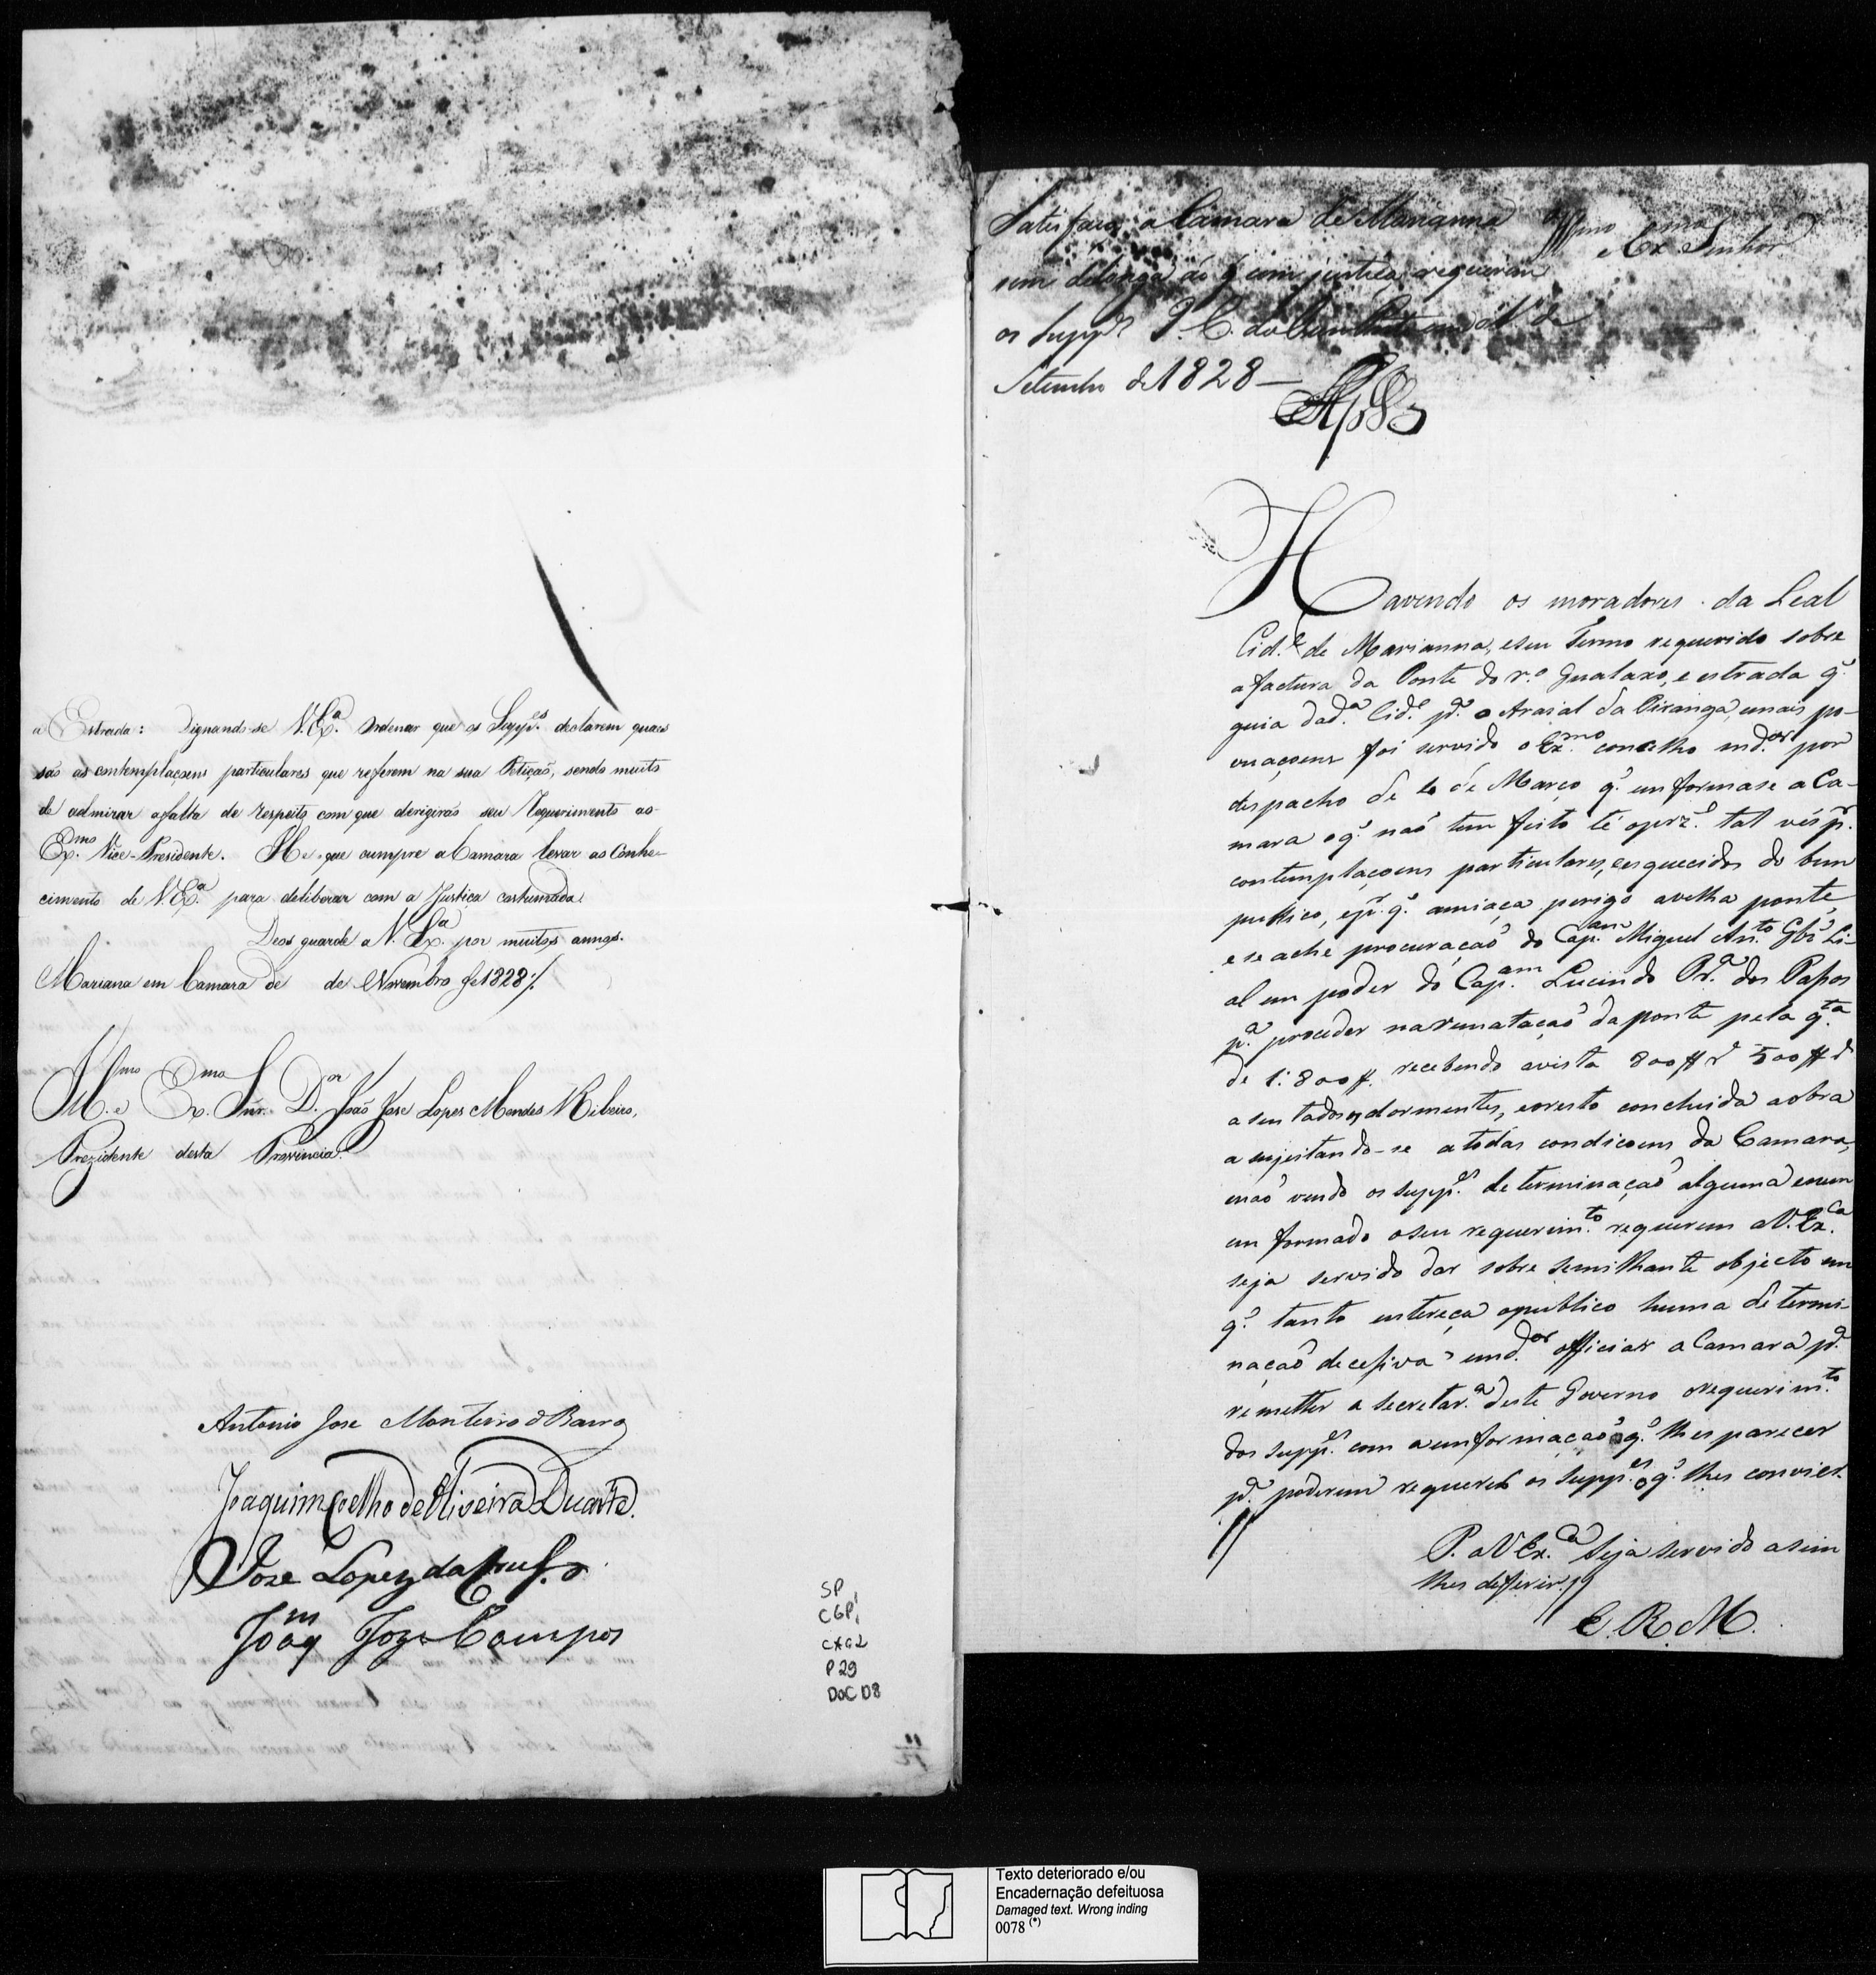 a Estrada: Dignando-se V. Exª. Ordenar que os Suppes. declarem quaes
são as contemplaçoens particulares que referem na sua Petição, sendo muito
de admirar afalta de respeito com que derigirão seu Requerimento ao
Exmo. Vice-Presidente. He o que cumpre a Camara levar ao Conhe-
cimento de V. Exª. para deliberar com a Justiça costumada.
Deos guarde a V. Exª. por muitos annos.
Mariana em Camara de de Novembro de 1828./.
Illmo. e Exmo. Snr. Dor. João Jose Lopes Mendes Ribeiro,
Prezidente desta Provincia.
Antonio Jose Monteiro de Barros
Joaquim Coelho de Oliveira Duarte.
Joze Lopez da Cruz
Joaqm Joze Campos
SP
CGP1
CX02
P29
DOC 08
Satisfaça a Câmara de Marianna
sem delonga ao q com justiça requerem
os Suppes P. C. do de
Setembro de 1828 —
Illmo e Exmo Senhor
Havendo os moradores da Leal
Cid.e de Marianna, eseu Termo requerido sobre
afactura da Ponte do r.o Gualaxo, e estrada q.
guia dad.a Cid.e p.a o Araial da Piranga, emais po-
vuaçoens foi servido o Exmo. concelho md.ar por
despacho de 10 de Março q. enformase a Ca-
mara oq. naõ tem feito té oprz.e tal vés p.r
contemplaçoens particulares, esquecidos do bem
publico, ep.r q. amiaça perigo avelha ponte,
e se ache procuraçaõ do Cap.am Miguel An.to Glz' Li-
al em poder do Cap.am Lucindo Pr.a dos Passos
p.a proceder naremataçaõ da ponte pela q.ta
de 1:800$. recebendo avista 800$ r 500$ r
asentados os dormentes, eoresto concluida aobra
asujeitando-se atodas condicoens da Camara,
enaõ vendo os supp.es determinaçaõ alguma enem
enformado oseu requerim.to requerem a V. Ex.ca
seja servido dar sobre semilhante objecto em
q. tanto enterеça opublico huma determi-
naçaõ decesiva, emd.ar officiar a Camara p.a
remetter a secretar.a deste Governo orequerim.to
dos supp.es com aenformaçaõ q. lhes parecer
p.a poderem requerer os supp.es oq. lhes convier.
P. a V Ex.ca Seja servido asim
lhes deferir.
E. R. M.
Texto deteriorado e/ou
Encadernação defeituosa
Damaged text. Wrong inding
0078 (*)